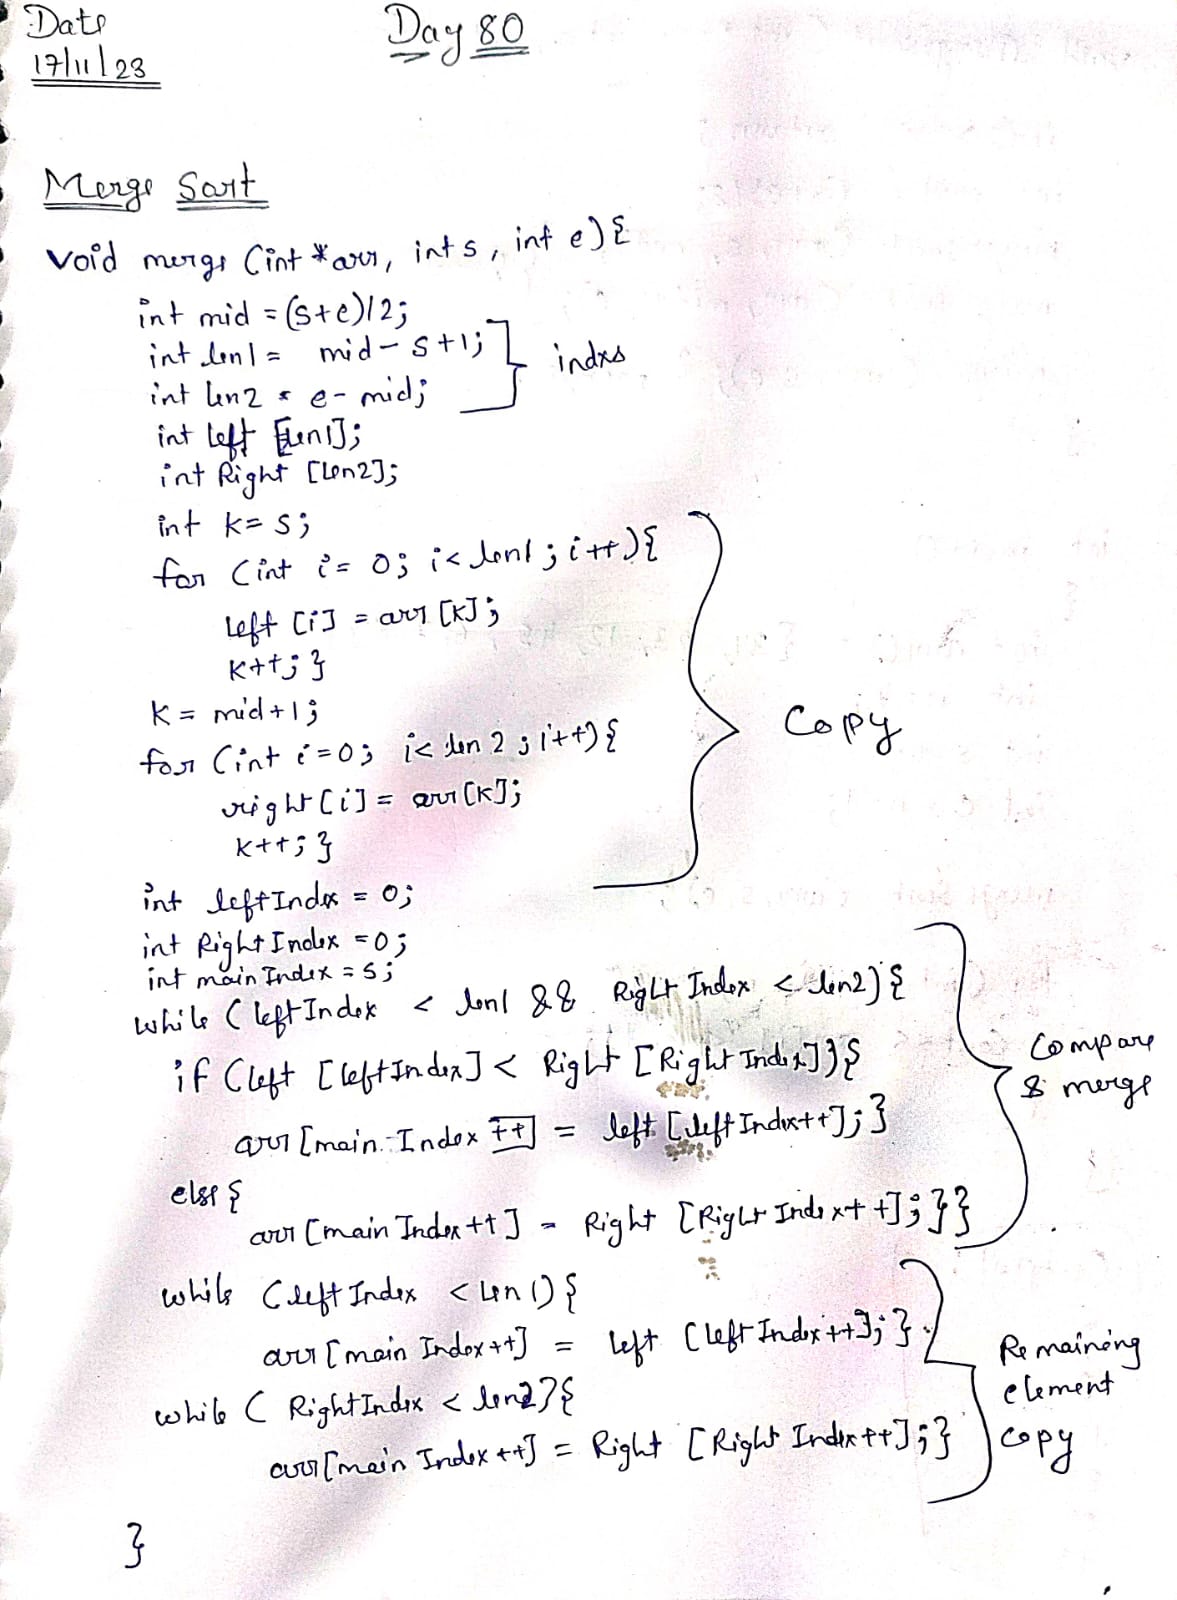 Date
17/11/23
Day 80
Merge Sort
void merge (int *arr, int s, int e) {
int mid = (s+e)/2;
int len1 = mid - s+1;
int len2 = e - mid;
indxs
int left [len1];
int Right [len2];
int k = s;
for (int i = 0; i < len1; i++) {
left [i] = arr [k];
k++; }
k = mid+1;
for (int i = 0; i < len2; i++) {
right [i] = arr [k];
k++; }
Copy
int leftIndex = 0;
int RightIndex = 0;
int mainIndex = s;
while (leftIndex < len1 && RightIndex < len2) {
if (left [leftIndex] < Right [RightIndex]) {
arr [main Index ++] = left [leftIndex++]; }
else {
arr [mainIndex++] = Right [RightIndex++]; } }
Compare
& merge
while (leftIndex < len1) {
arr [mainIndex++] = left [leftIndex++]; }
while (RightIndex < len2) {
arr [mainIndex++] = Right [RightIndex++]; }
Remaining
element
copy
}